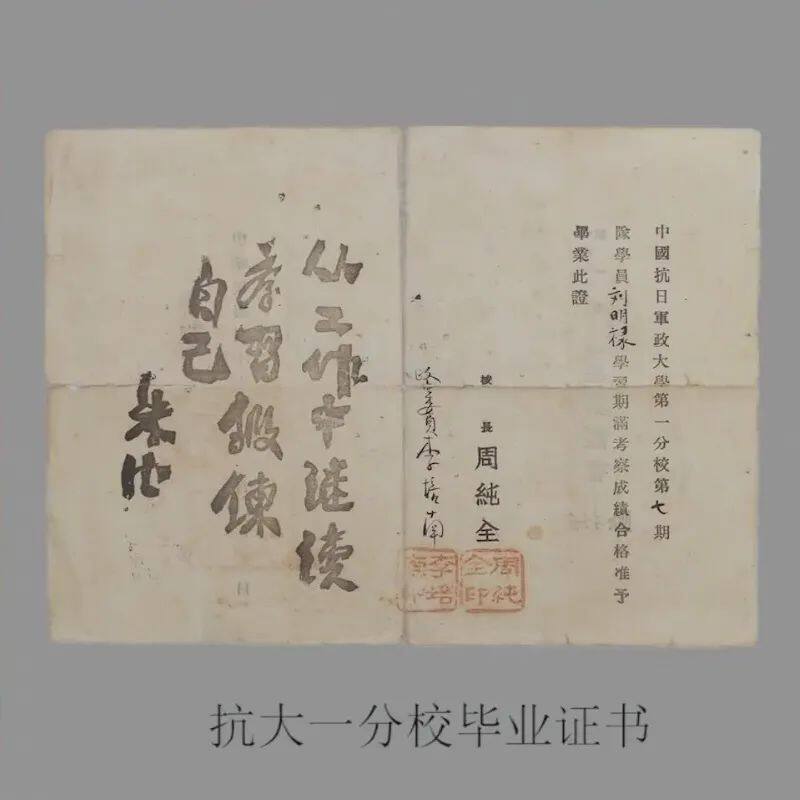 中國抗日軍政大學第一分校第七期
隊學員刘明禄學習期滿考察成績合格准予
畢業此證
校長周純全
政委員李培南
周純全印
从工作中继续
学习锻鍊
自己
朱德
抗大一分校毕业证书